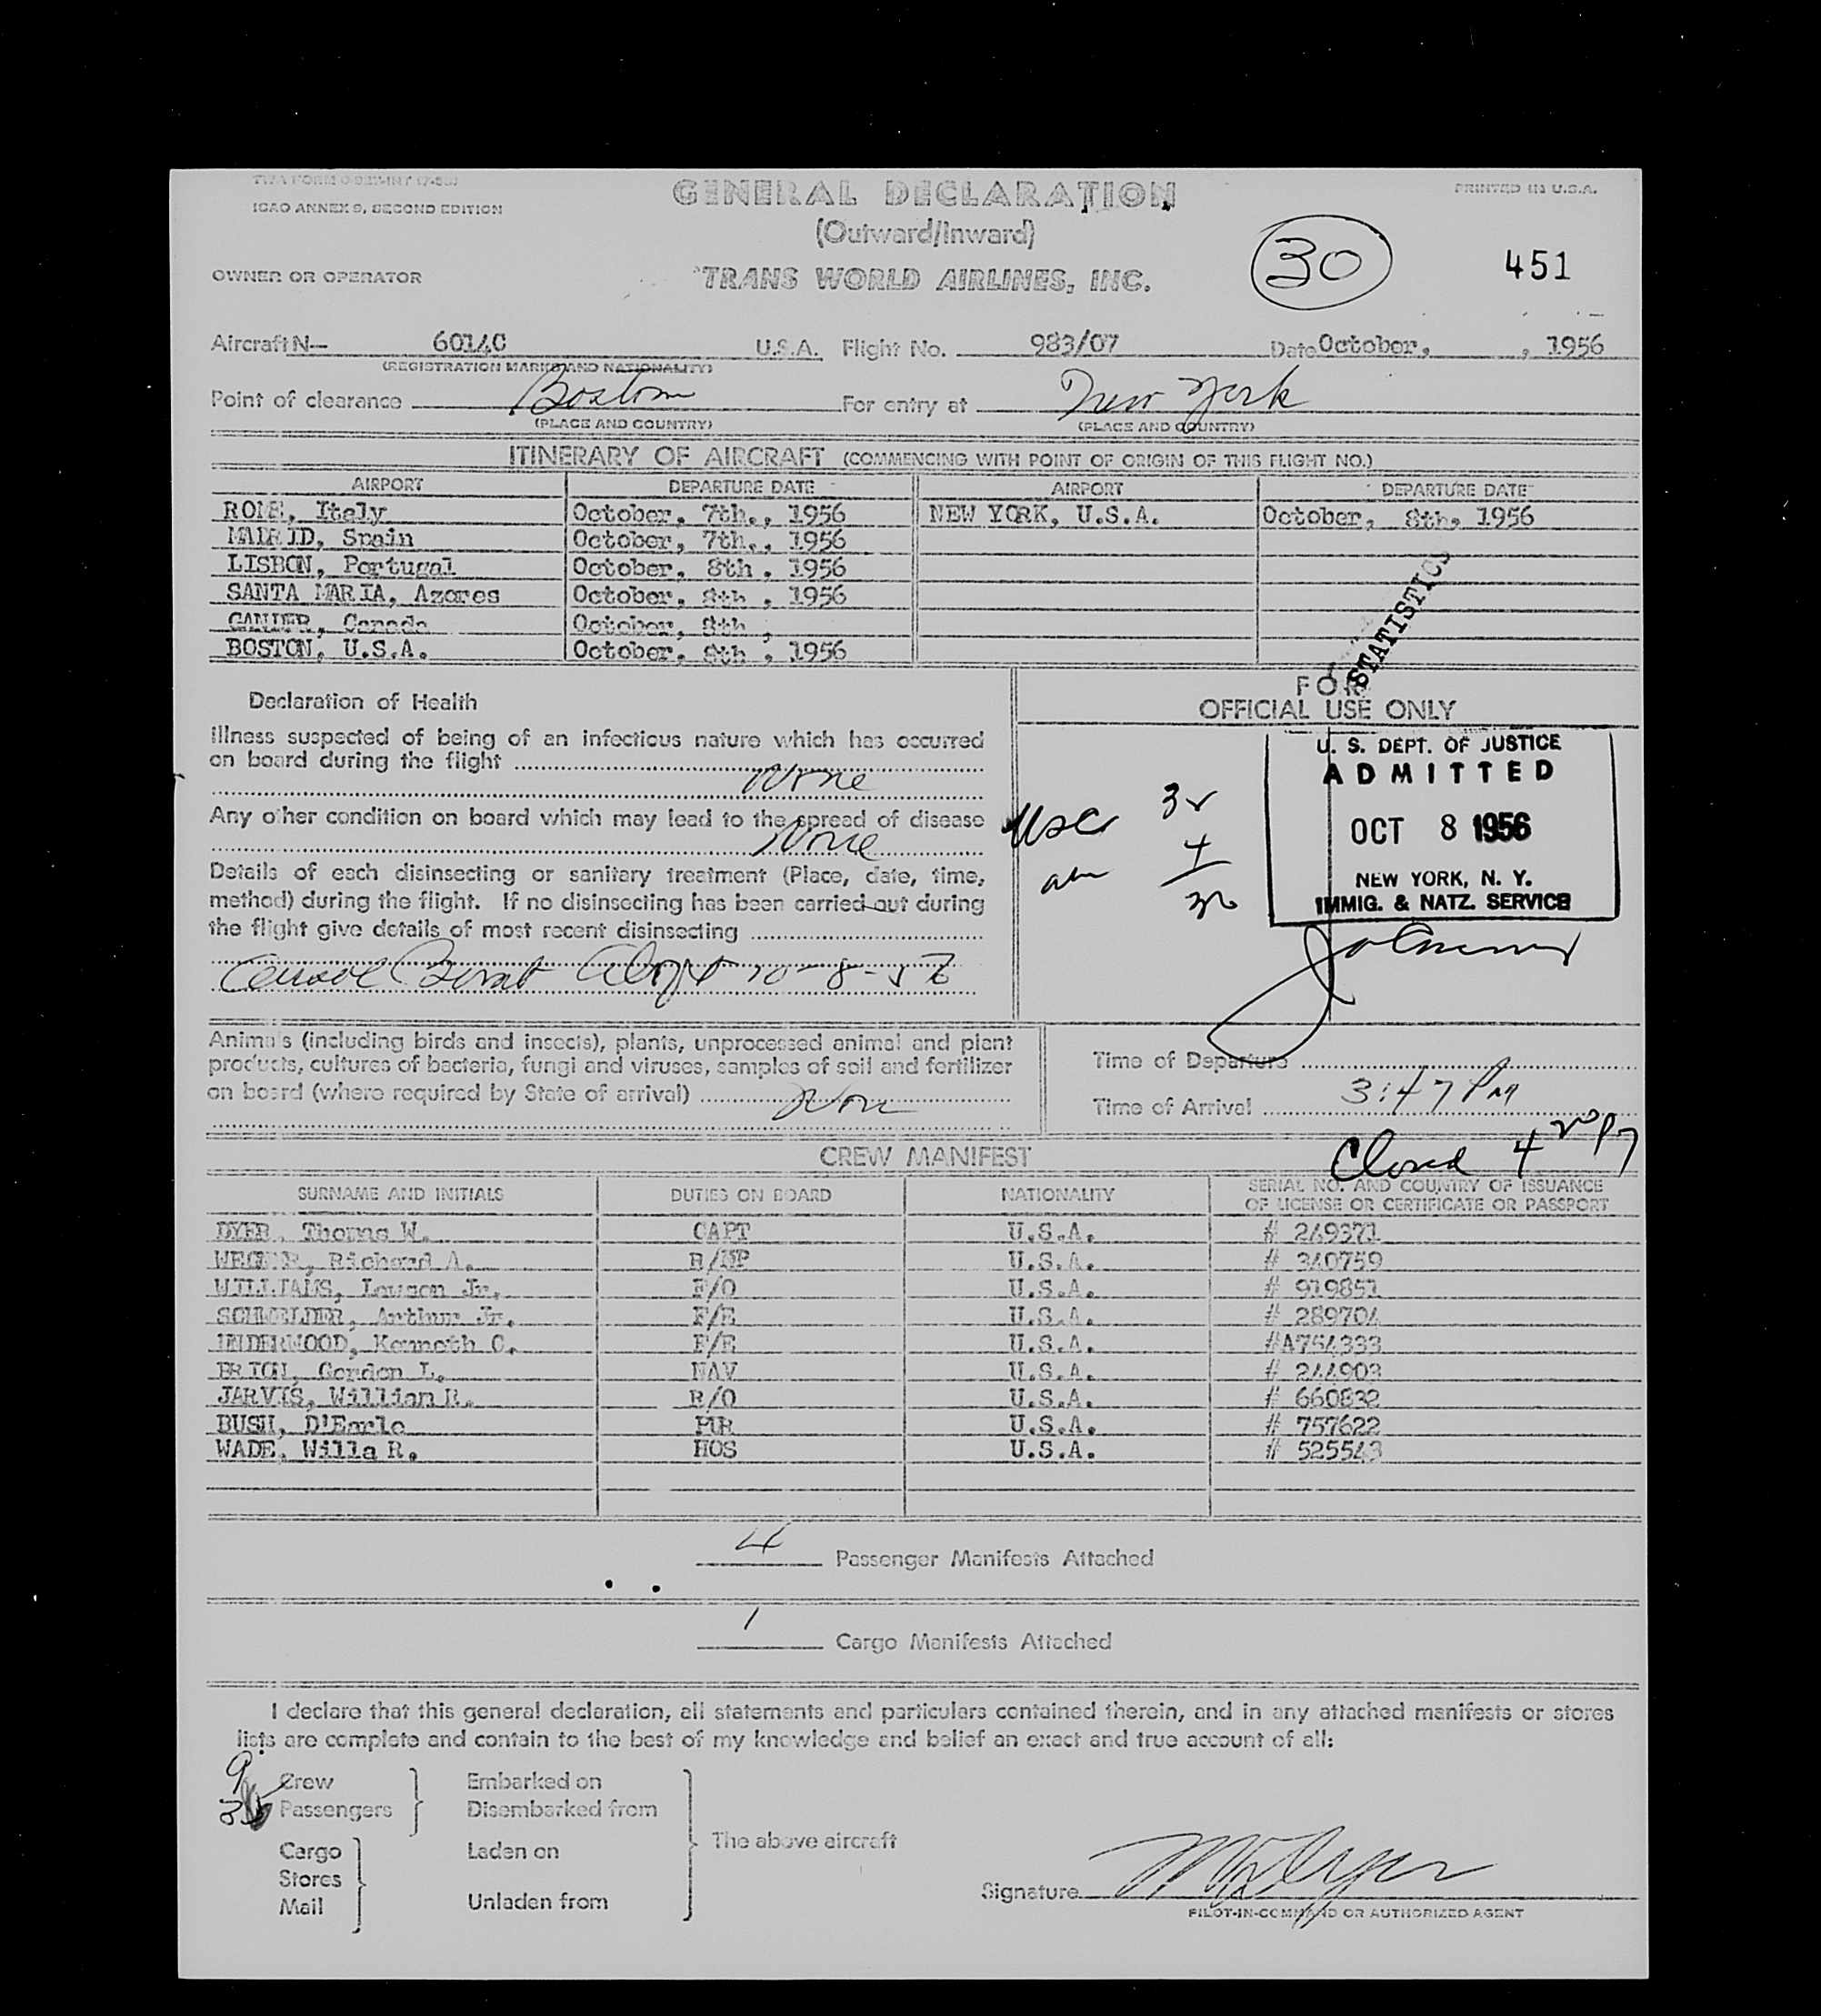 ICAO ANNEX 9, SECOND EDITION
GENERAL DECLARATION
PRINTED IN U.S.A.
(Outward/Inward)
OWNER OR OPERATOR
TRANS WORLD AIRLINES, INC.
30
451
Aircraft N- 6014C U.S.A. Flight No. 983/07 Date October, , 1956
(REGISTRATION MARKS AND NATIONALITY)
Point of clearance Boston For entry at New York
(PLACE AND COUNTRY) (PLACE AND COUNTRY)
ITINERARY OF AIRCRAFT (COMMENCING WITH POINT OF ORIGIN OF THIS FLIGHT NO.)
AIRPORT DEPARTURE DATE AIRPORT DEPARTURE DATE
ROME, Italy October, 7th., 1956 NEW YORK, U.S.A. October, 8th, 1956
MADRID, Spain October, 7th., 1956
LISBON, Portugal October, 8th, 1956
SANTA MARIA, Azores October, 8th, 1956
GANDER, Canada October, 8th,
BOSTON, U.S.A. October, 8th, 1956
STATISTICS
FOR
OFFICIAL USE ONLY
Declaration of Health
Illness suspected of being of an infectious nature which has occurred
on board during the flight
None
Any other condition on board which may lead to the spread of disease
None
Details of each disinsecting or sanitary treatment (Place, date, time,
method) during the flight. If no disinsecting has been carried out during
the flight give details of most recent disinsecting
10-8-
U. S. DEPT. OF JUSTICE
ADMITTED
OCT 8 1956
NEW YORK, N. Y.
IMMIG. & NATZ. SERVICE
USC
4
Animals (including birds and insects), plants, unprocessed animal and plant
products, cultures of bacteria, fungi and viruses, samples of soil and fertilizer
on board (where required by State of arrival)
None
Time of Departure
Time of Arrival 3:47 PM
Closed 4
CREW MANIFEST
SURNAME AND INITIALS DUTIES ON BOARD NATIONALITY SERIAL NO. AND COUNTRY OF ISSUANCE
OF LICENSE OR CERTIFICATE OR PASSPORT
DYER, Thomas W. CAPT U.S.A. # 249371
Richard A. U.S.A. # 340759
WILLIAMS, Lawson Jr. F/O U.S.A. # 919851
Arthur Jr. F/E U.S.A. # 289704
UNDERWOOD, Kenneth C. F/E U.S.A. #A754333
Gordon L. NAV U.S.A. # 244903
JARVIS, William R. R/O U.S.A. # 660832
BUSH, D'Earle PUR U.S.A. # 757622
WADE, Willa R. HOS U.S.A. # 525543
4 Passenger Manifests Attached
1 Cargo Manifests Attached
I declare that this general declaration, all statements and particulars contained therein, and in any attached manifests or stores
lists are complete and contain to the best of my knowledge and belief an exact and true account of all:
9 Crew
Passengers
Embarked on
Disembarked from
Cargo
Stores
Mail
Laden on
Unladen from
The above aircraft
Signature
PILOT-IN-COMMAND OR AUTHORIZED AGENT